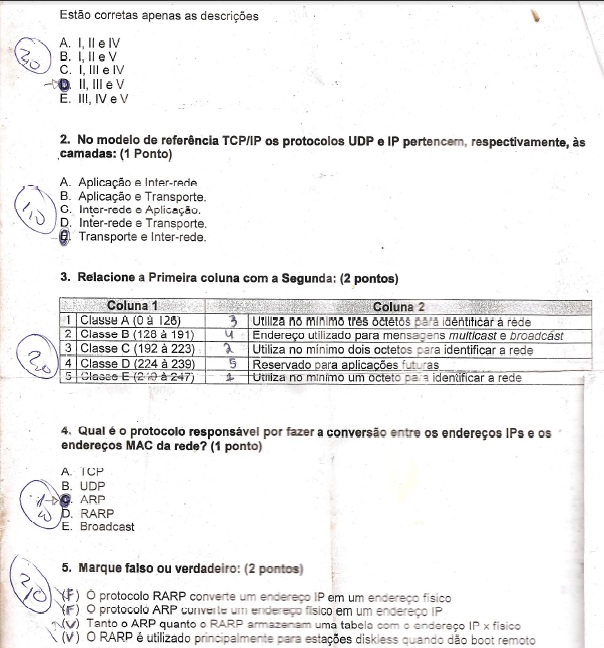 Estão corretas apenas as descrições
A. I, II e IV
B. I, II e V
C. I, III e IV
D. II, III e V
E. III, IV e V
2,0
2. No modelo de referência TCP/IP os protocolos UDP e IP pertencem, respectivamente, às
camadas: (1 Ponto)
A. Aplicação e Inter-rede
B. Aplicação e Transporte.
C. Inter-rede e Aplicação.
D. Inter-rede e Transporte.
E. Transporte e Inter-rede.
1,0
3. Relacione a Primeira coluna com a Segunda: (2 pontos)
Coluna 1 Coluna 2
1 Classe A (0 à 126) 3 Utiliza no mínimo três octetos para identificar a rede
2 Classe B (128 à 191) 4 Endereço utilizado para mensagens multicast e broadcast
3 Classe C (192 à 223) 2 Utiliza no mínimo dois octetos para identificar a rede
4 Classe D (224 à 239) 5 Reservado para aplicações futuras
5 Classe E (240 à 247) 1 Utiliza no mínimo um octeto para identificar a rede
2,0
4. Qual é o protocolo responsável por fazer a conversão entre os endereços IPs e os
endereços MAC da rede? (1 ponto)
A. TCP
B. UDP
C. ARP
D. RARP
E. Broadcast
5. Marque falso ou verdadeiro: (2 pontos)
2,0
(F) O protocolo RARP converte um endereço IP em um endereço físico
(F) O protocolo ARP converte um endereço físico em um endereço IP
(V) Tanto o ARP quanto o RARP armazenam uma tabela com o endereço IP x físico
(V) O RARP é utilizado principalmente para estações diskless quando dão boot remoto